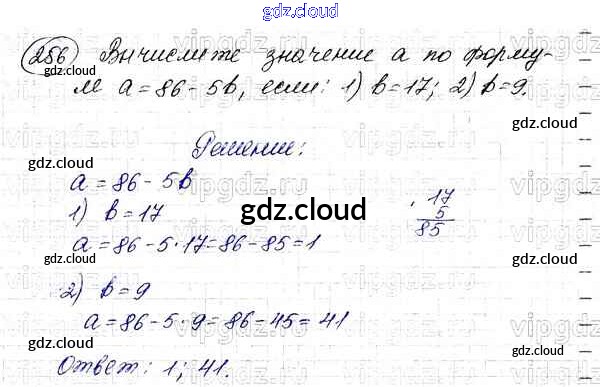 gdz.cloud
256) Вычислите значение a по форму-
ле a = 86 - 5b, если: 1) b = 17; 2) b = 9.
Решение:
a = 86 - 5b
1) b = 17
17
5
85
a = 86 - 5·17 = 86 - 85 = 1
2) b = 9
a = 86 - 5·9 = 86 - 45 = 41
Ответ: 1; 41.
gdz.cloud
gdz.cloud
gdz.cloud
gdz.cloud
gdz.cloud
gdz.cloud
gdz.cloud
gdz.cloud
gdz.cloud
gdz.cloud